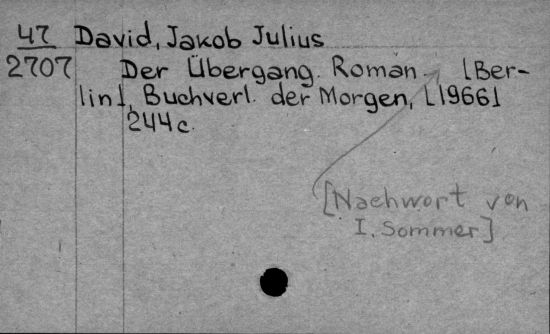 47 David, Jakob Julius
2707 Der Übergang. Roman. [Ber-
lin], Buchverl. der Morgen, [1966]
244 c.
[Nachwort von
I. Sommer]